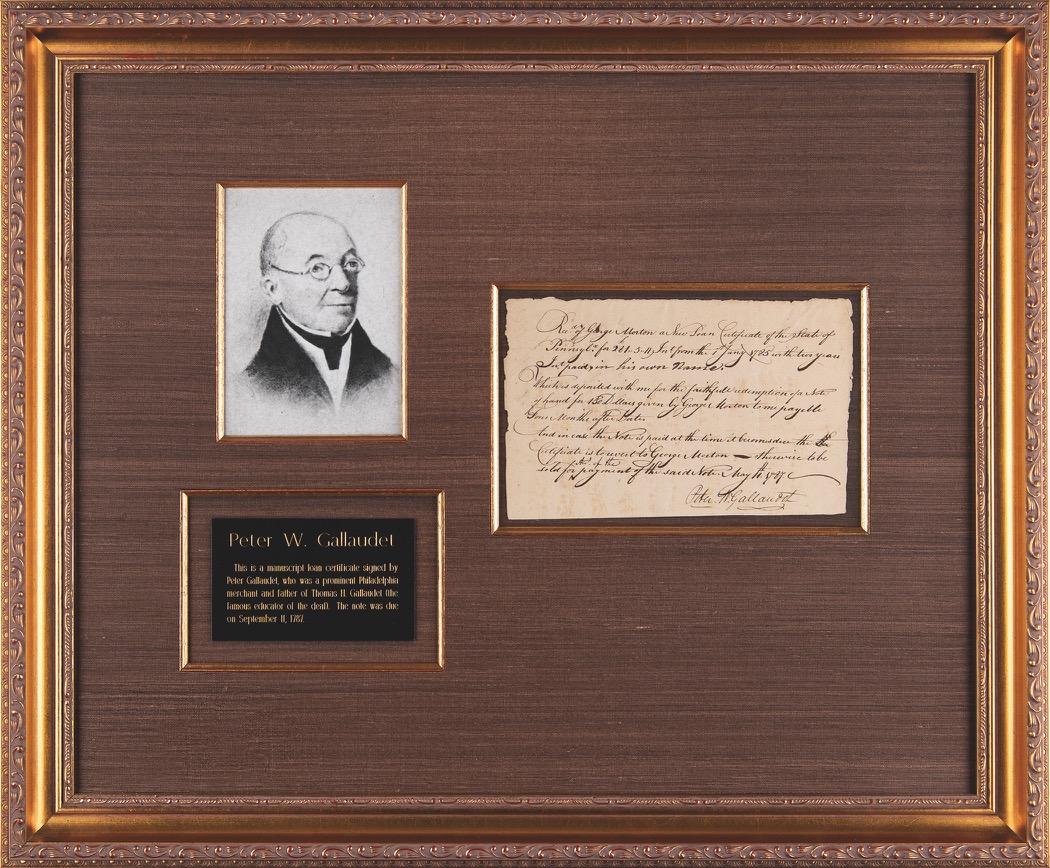 Rec.d of George Morton a New Loan Certificate of the State of
Pennsyl.a for 261.3.11 Int from the 1st Jan.y 1785 with two years
Int paid, in his own Name.
Which is deposited with me for the faithfull redemption of a Note
of hand for Dollars given by George Morton to me payable
Four Months after Date.
And in case the Note is paid at the time it becomes due the
Certificate is to revert to George Morton — otherwise to be
sold for payment of the said Note. May 11th 1787
Peter W. Gallaudet
Peter W. Gallaudet
This is a manuscript loan certificate signed by
Peter Gallaudet, who was a prominent Philadelphia
merchant and father of Thomas H. Gallaudet (the
famous educator of the deaf). The note was due
on September 11, 1787.